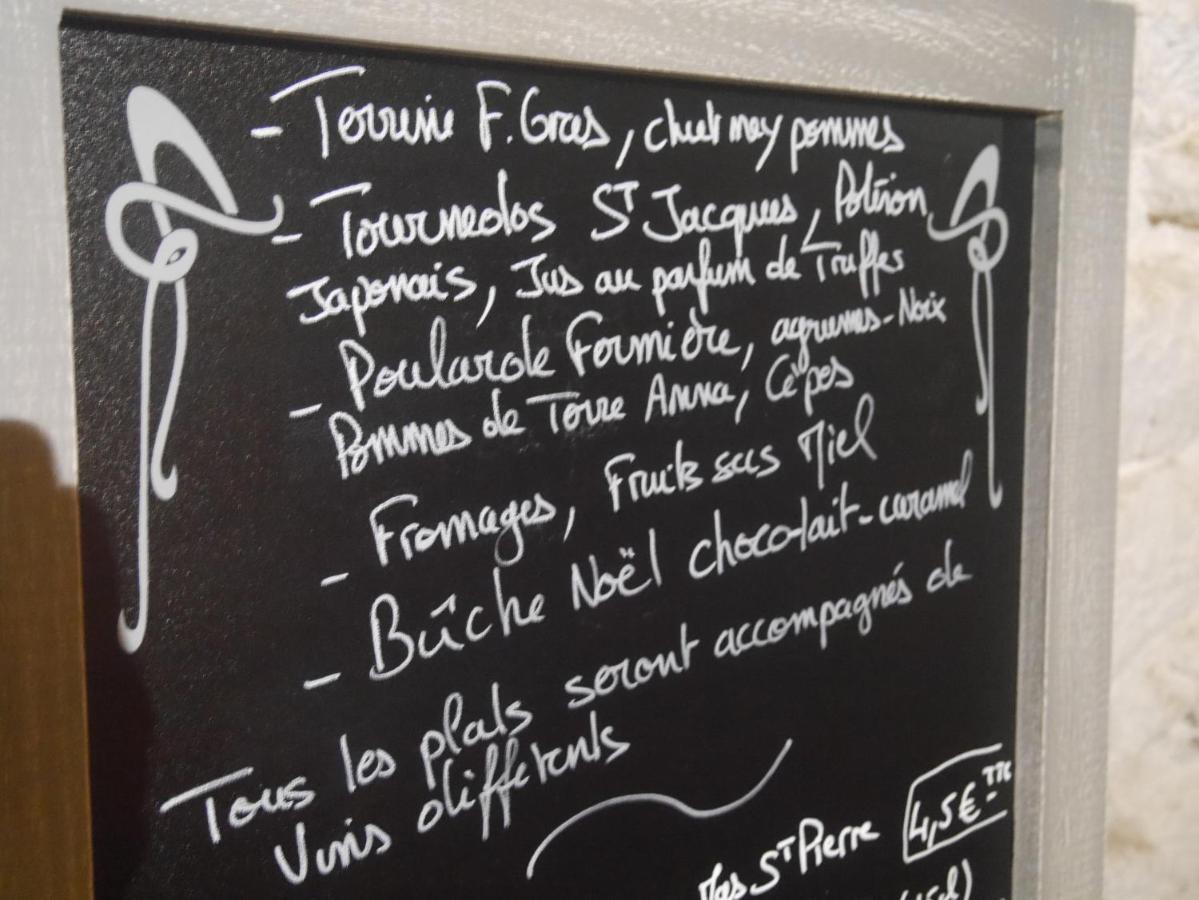 - Terrine F. Gras, chutney pommes
- Tournedos ST Jacques, Potiron
Japonais, Jus au parfum de Truffes
- Poularde Fermière, agrumes-Noix
Pommes de Terre Anna, Cèpes
- Fromages, Fruits secs Miel
- Bûche Noël choco-lait-caramel
Tous les plats seront accompagnés de
Vins différents
Mas ST Pierre 4,5€ TTC